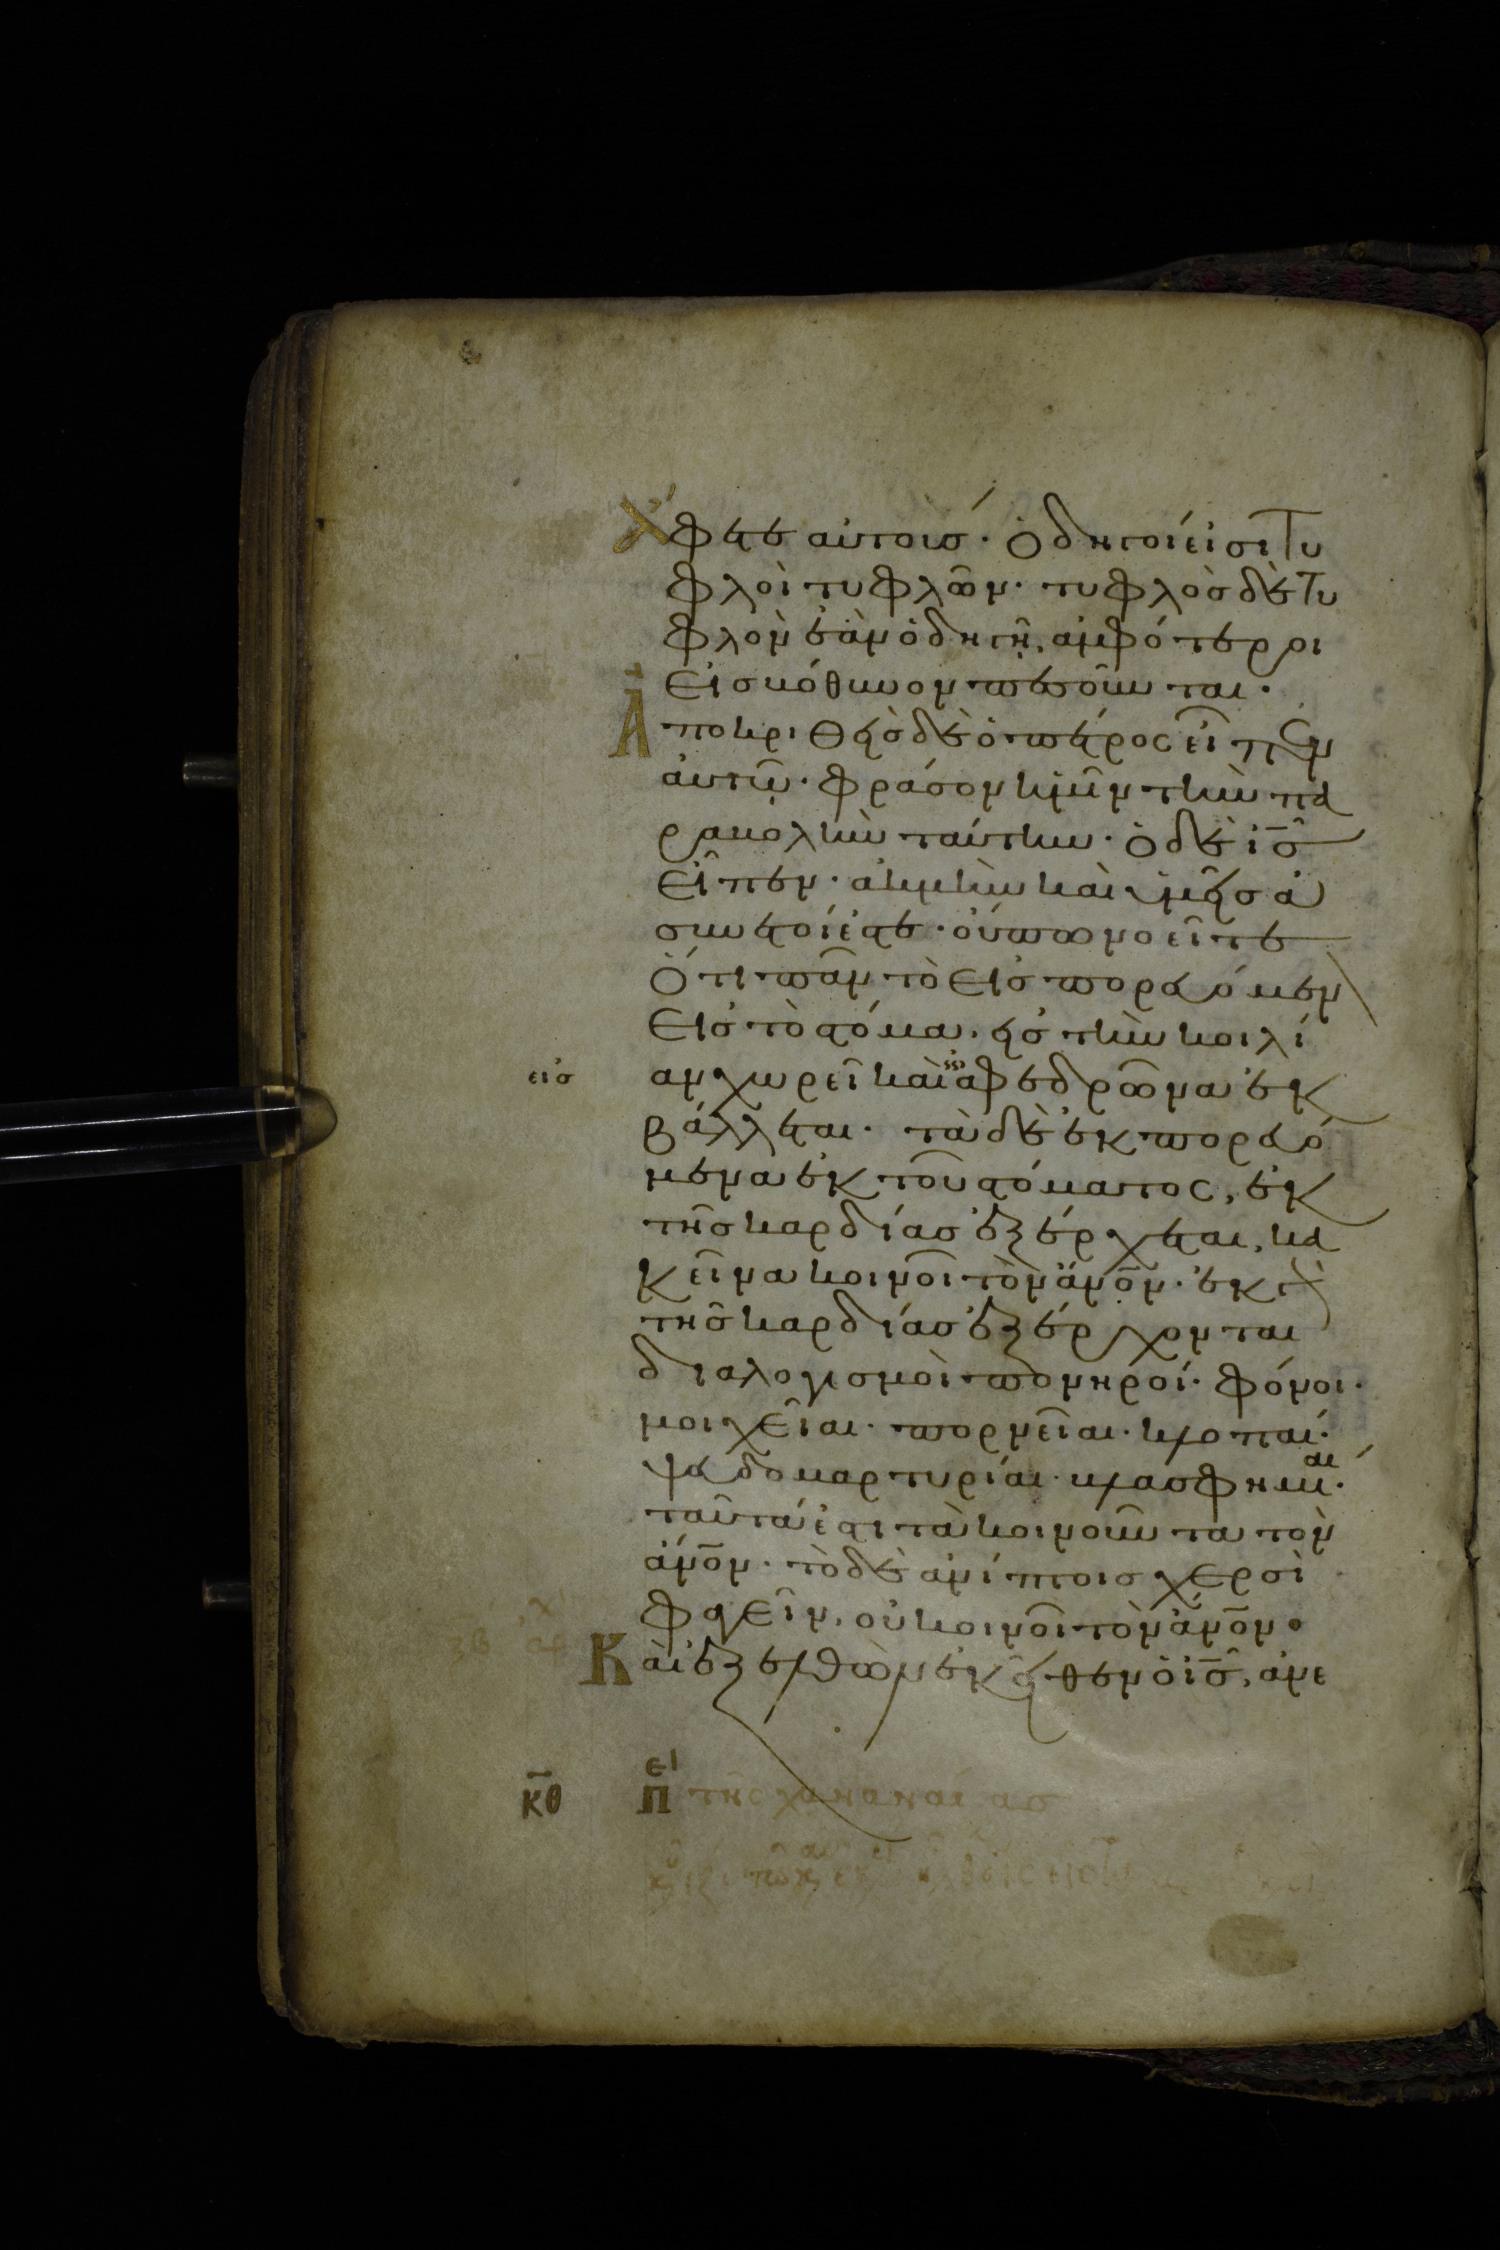 Ἄφετε αὐτούσ· ὁδηγοί εἰσι τυ
φλοὶ τυφλῶν· τυφλὸσ δὲ τυ
φλὸν ἐὰν ὁδηγῆ, ἀμφότεροι
εἰσ βόθυνον πεσοῦνται·
Ἀποκριθεὶσ δὲ ὁ πέτροσ εἶπεν
αὐτῶ· φράσον ἡμῖν τὴν πα
ραβολὴν ταύτην· ὁ δὲ ισ
εἶπεν· ἀκμὴν καὶ ὑμεῖσ ἀ
σύνετοί ἐστε· οὔπω νοεῖτε
ὅτι πᾶν τὸ εἰσπορευόμεν
εἰσ τὸ στόμα, εἰσ τὴν κοιλί
εἰσ αν χωρεῖ καὶ ἀφεδρῶνα ἐκ
βάλλεται· τὰ δὲ ἐκπορευό
μενα ἐκ τοῦ στόματοσ, ἐκ
τῆσ καρδίασ ἐξέρχεται, κα
κεῖνα κοινοῖ τὸν ἄνον· ἐκ γὰρ
τῆσ καρδίασ ἐξέρχονται
διαλογισμοὶ πονηροί· φόνοι·
μοιχεῖαι· πορνεῖαι· κλοπαί·
ψευδομαρτυρίαι· βλασφημίαι·
ταῦτά ἐστι τὰ κοινοῦντα τὸν
ἄνον· τὸ δὲ ἀνίπτοισ χερσὶ
φαγεῖν, οὐ κοινοῖ τὸν ἄνον·
Καὶ ἐξελθὼν ἐκεῖθεν ὁ ισ, ἀνε
κθ περὶ τῆσ χαναναίασ